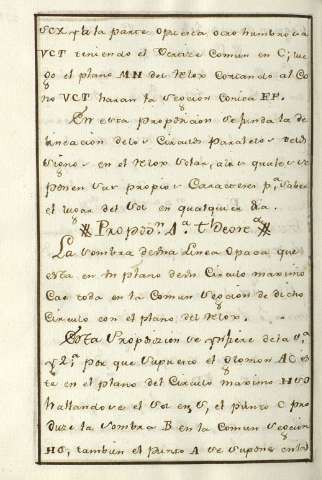 VCX y a la parte opuesta otro hambroeia
VCT teniendo el Vertice Comun en C; lue
go el plano MN del Relox Cortando al Co
no VCT haran la Seccion Conica FF.
En esta proposicion se funda la de
lineacion de los Circulos paralelos de los
Signos en el Relox Solar, a los quales se
ponen sus propios Caracteres p.ª saber
el lugar del Sol en qualquier dia.
Propos.ⁿ 4.ª Theore.ᵃ
La sombra de una Linea Opaca que
esta en un plano de un Circulo maximo
Cae toda en la Comun Seccion de dicho
Circulo con el plano del Relox.
Esta Proposizion se ynfiere de la 1.ª
y 2.ª por que supuesto el Gnomon AC es
te en el plano del Circulo maximo HSO
hallandose el Sol en S, el punto C pro
duze la sombra B en la Comun Seccion
HO; tambien el punto A se supone en la